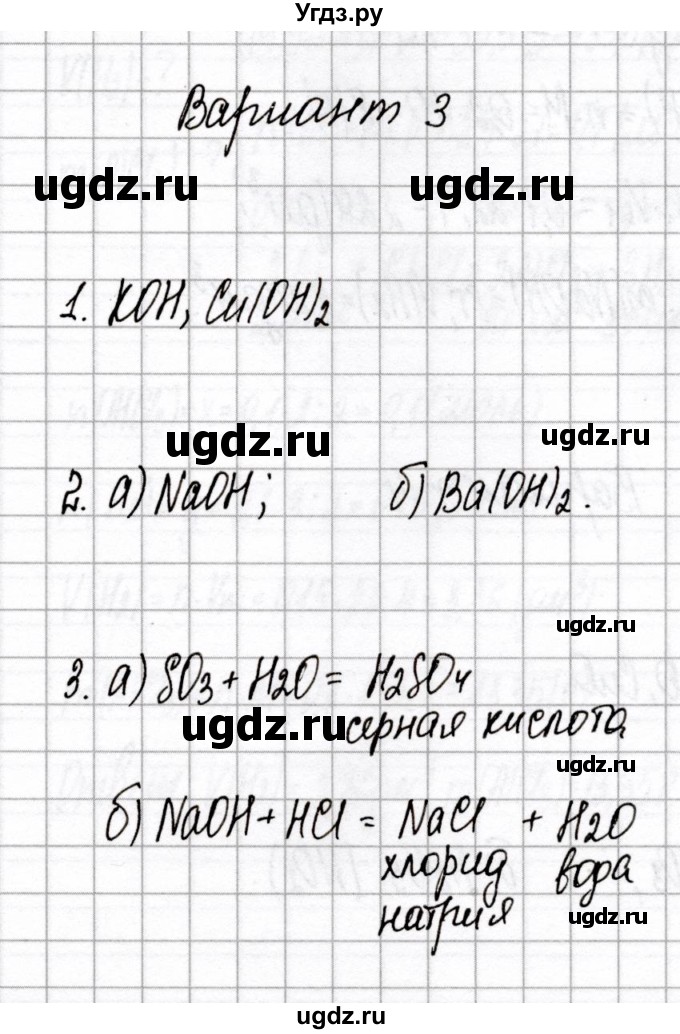 Угдз.ру
Вариант 3
ugdz.ru ugdz.ru
1. KOH, Cu(OH)2
ugdz.ru ugdz.ru
2. а) NaOH; б) Ba(OH)2.
ugdz.ru
3. а) SO3 + H2O = H2SO4
ugdz.ru серная кислота
ugdz.ru
б) NaOH + HCl = NaCl + H2O
хлорид вода
натрия ugdz.ru
ugdz.ru